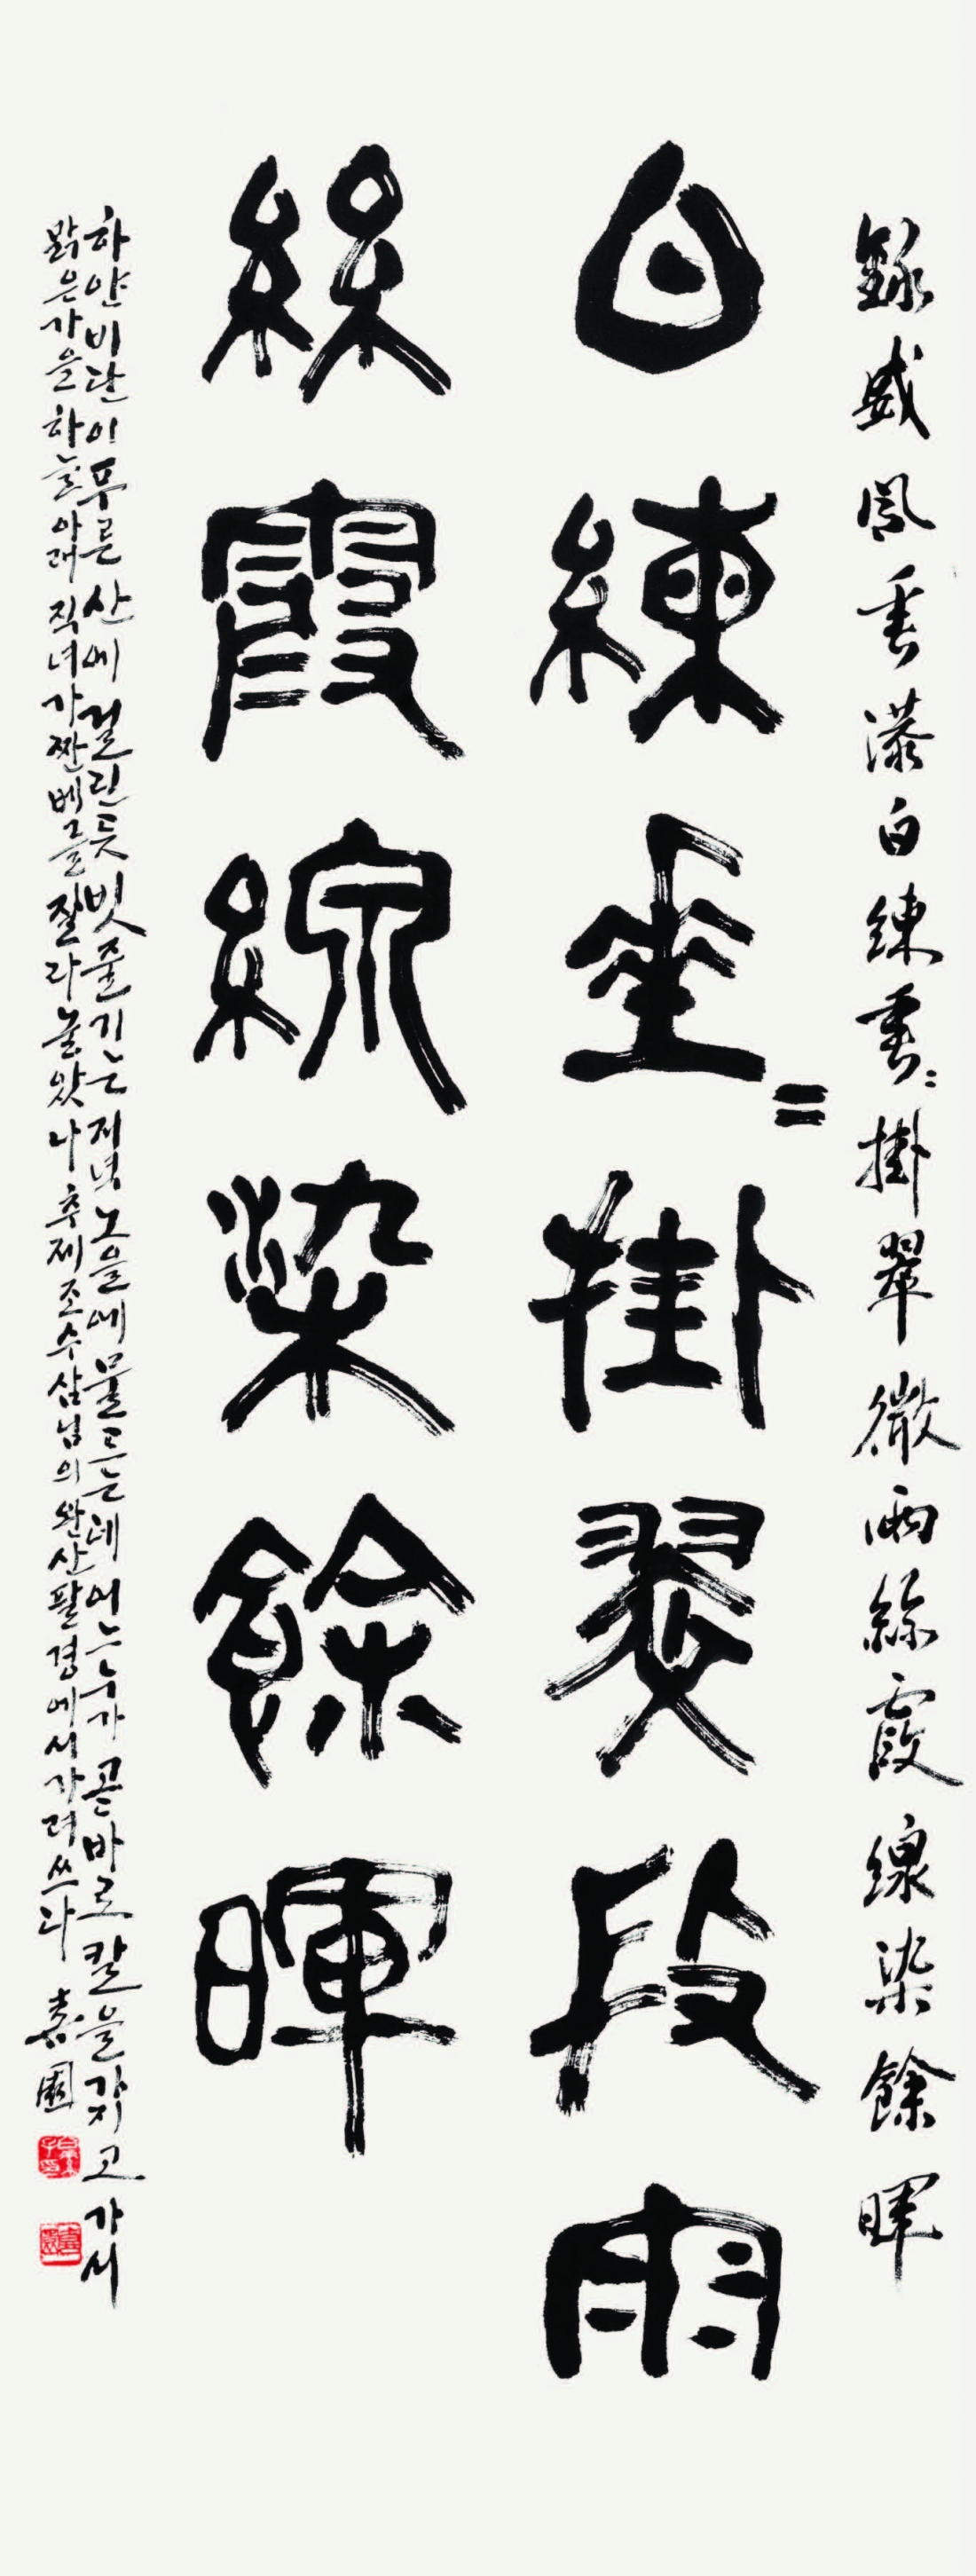 錄威鳳垂瀑白練垂〻掛翠微雨絲霞線染餘暉
白練垂〻掛翠微雨
絲霞線染餘暉
하얀 비단이 푸른 산에 걸린 듯 빗줄기는 저녁 노을에 물드는데 어느 누가 곧바로 칼을 가지고 가서
맑은 가을 하늘 아래 직녀가 짠 베를 잘라 놓았나 추제 조수삼님의 완산팔경에서 가려 쓰다 園